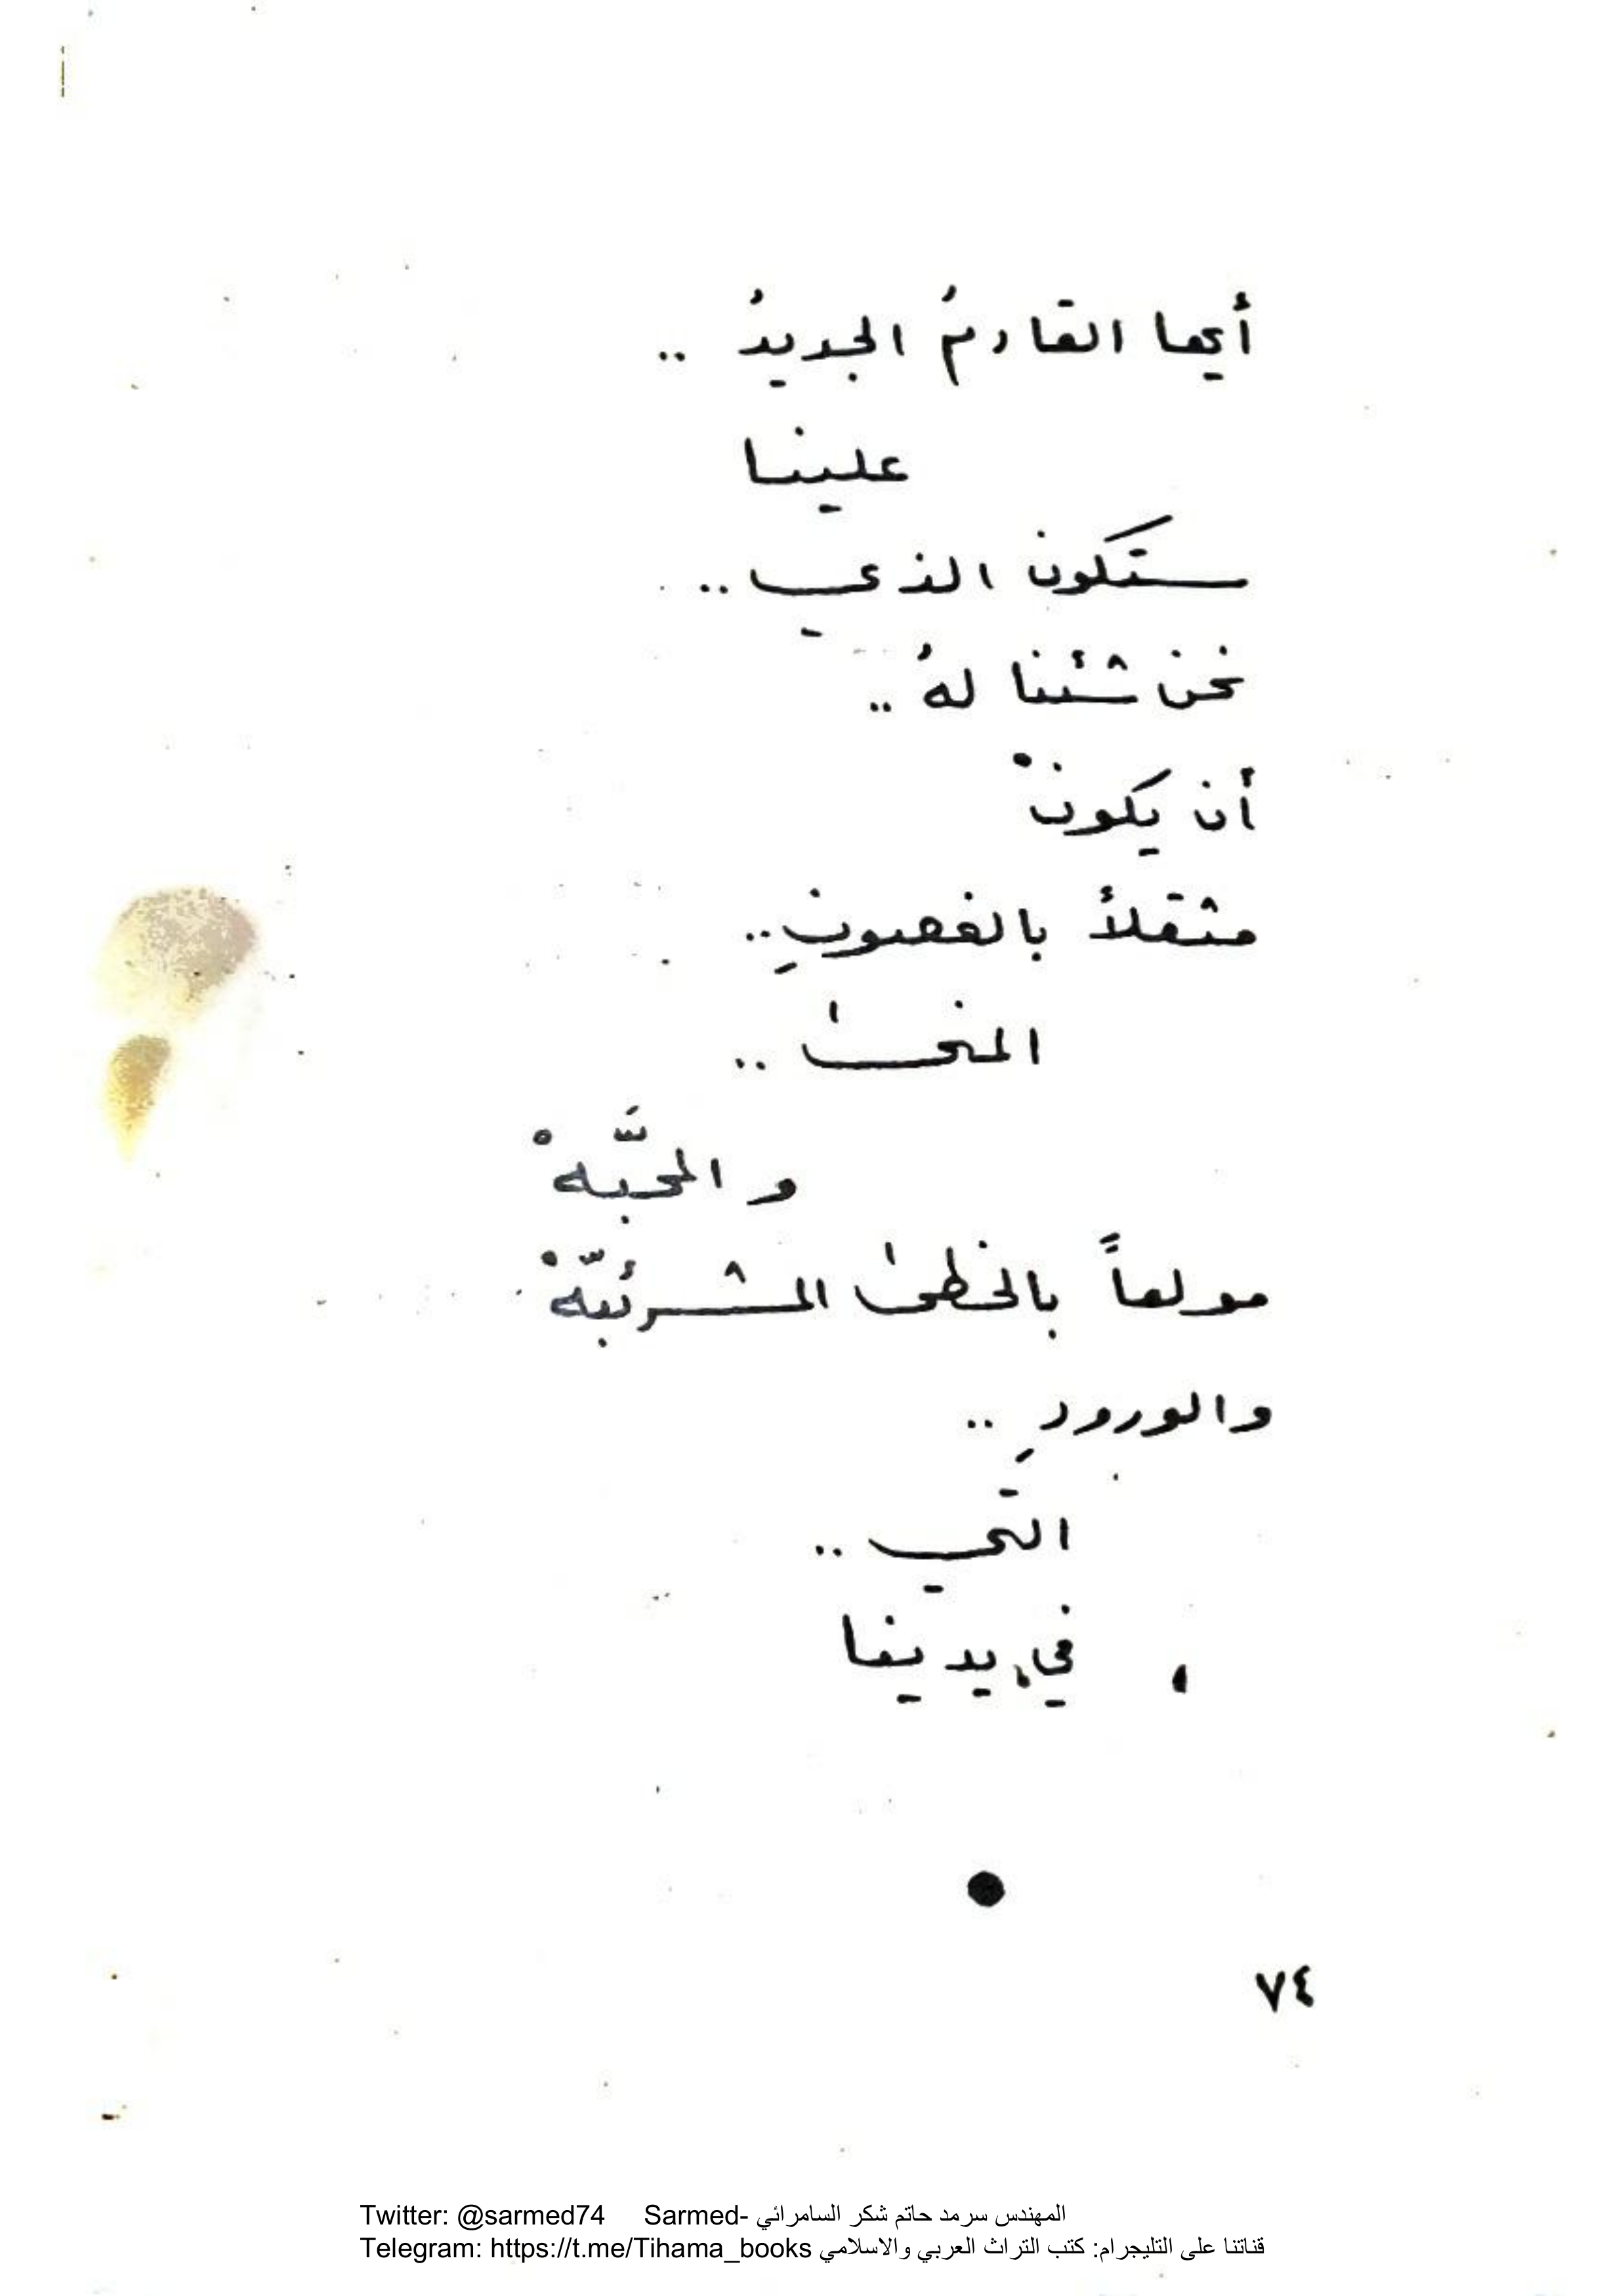 أيها القادمُ الجديدُ ..
علينا
ستكون الذي ..
نحن شئنا لهُ ..
أن يكونْ
مثقلاً بالغصونِ ..
المنى ..
و المحبَّهْ
مولعاً بالخطى المشرئبّهْ
والورودِ ..
التي ..
في يدينا
٧٤
Twitter: @sarmed74 Sarmed- المهندس سرمد حاتم شكر السامرائي
Telegram: https://t.me/Tihama_books قناتنا على التليجرام: كتب التراث العربي والاسلامي